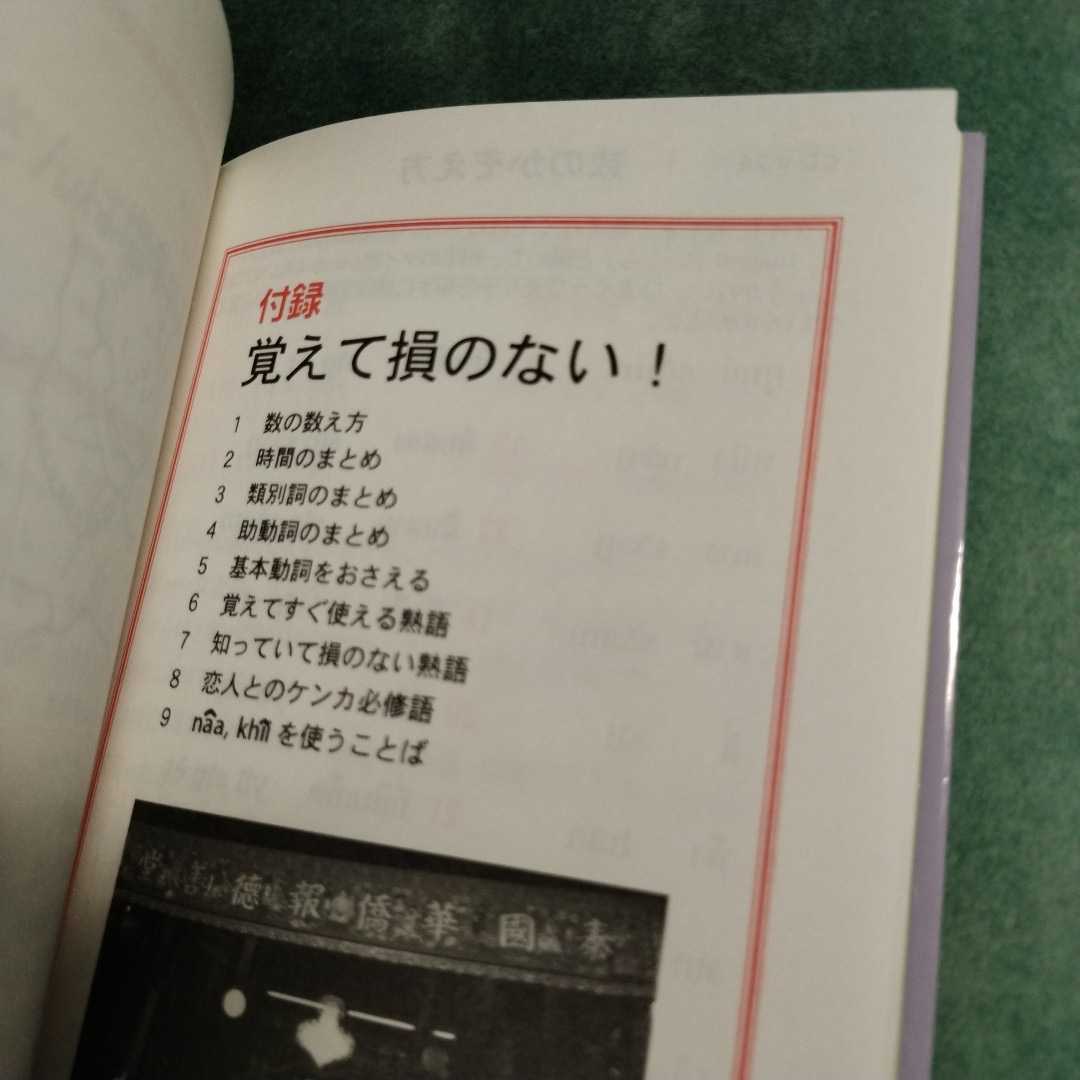 付録
覚えて損のない！
1 数の数え方
2 時間のまとめ
3 類別詞のまとめ
4 助動詞のまとめ
5 基本動詞をおさえる
6 覚えてすぐ使える熟語
7 知っていて損のない熟語
8 恋人とのケンカ必修語
9 nâa, khîi を使うことば
堂善德報僑華國泰